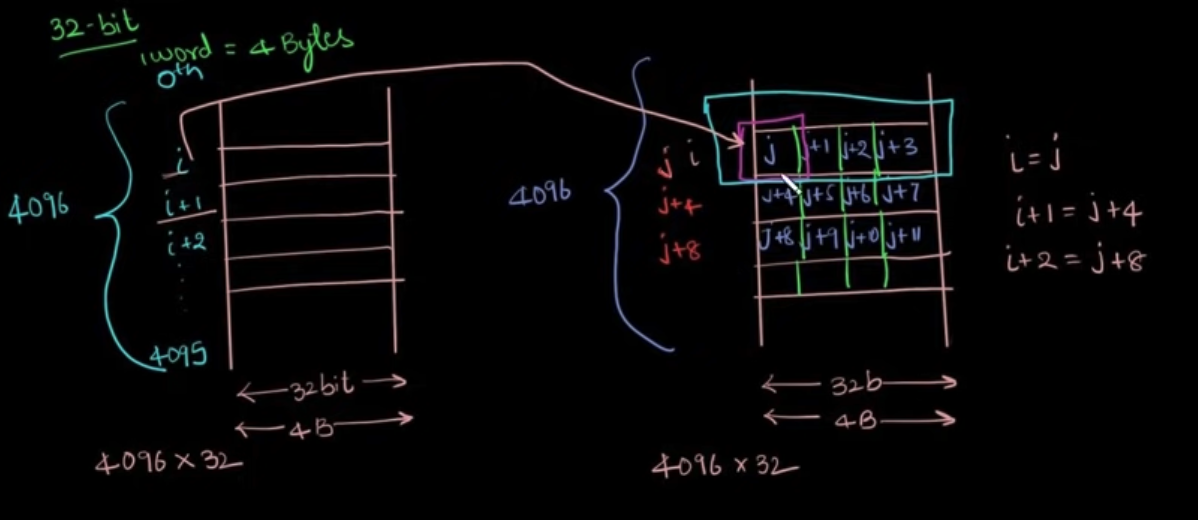 32-bit
1word = 4 Bytes
0th
4096
i
i+1
i+2
4095
32bit
4B
4096 × 32
4096
j i
j+4
j+8
j j+1 j+2 j+3
j+4 j+5 j+6 j+7
j+8 j+9 j+10 j+11
32b
4B
4096 × 32
i = j
i+1 = j+4
i+2 = j+8